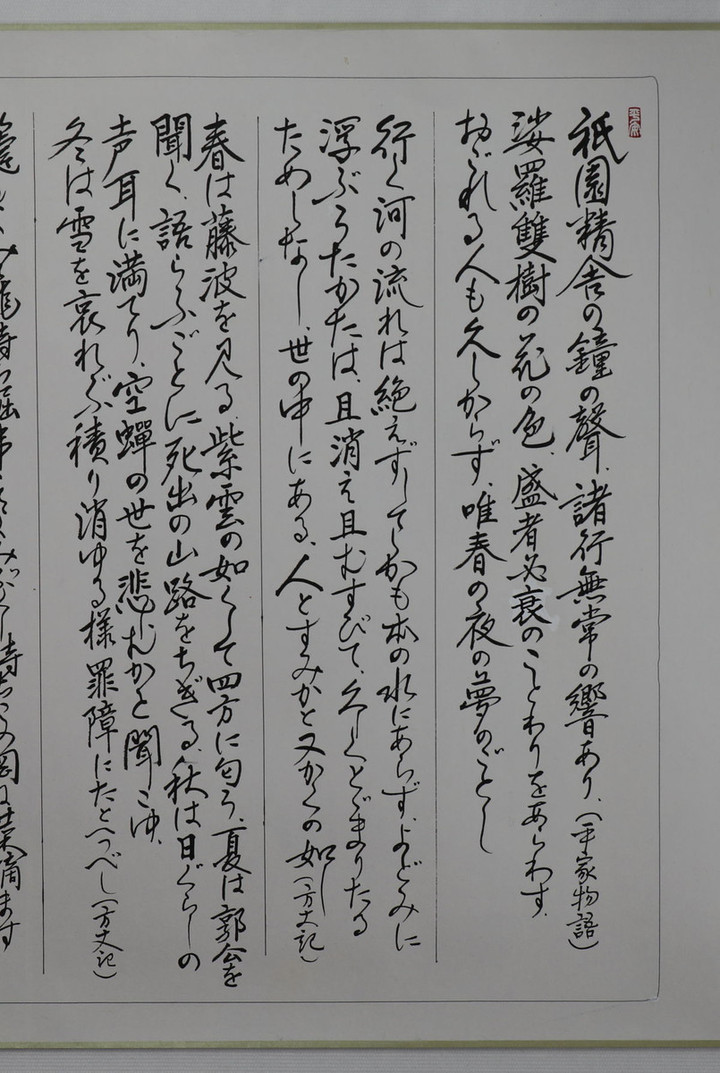 祇園精舎の鐘の聲、諸行無常の響あり、(平家物語)
娑羅雙樹の花の色、盛者必衰のことわりをあらわす、
おごれる人も久しからず、唯春の夜の夢のごとし
行く河の流れは絶えずしてしかも本の水にあらず、よどみに
浮ぶうたかたは、且消え且むすびて、久しくとどまりたる
ためしなし、世の中にある、人とすみかと又かくの如し(方丈記)
春は藤波を見る、紫雲の如くして四方に匂う、夏は郭公を
聞く、語らふごとに死出の山路をちぎる、秋は日ぐらしの
声耳に満てり、空蟬の世を悲むかと聞こゆ、
冬は雪を哀れぶ、積り消ゆる様罪障にたとへつべし(方丈記)